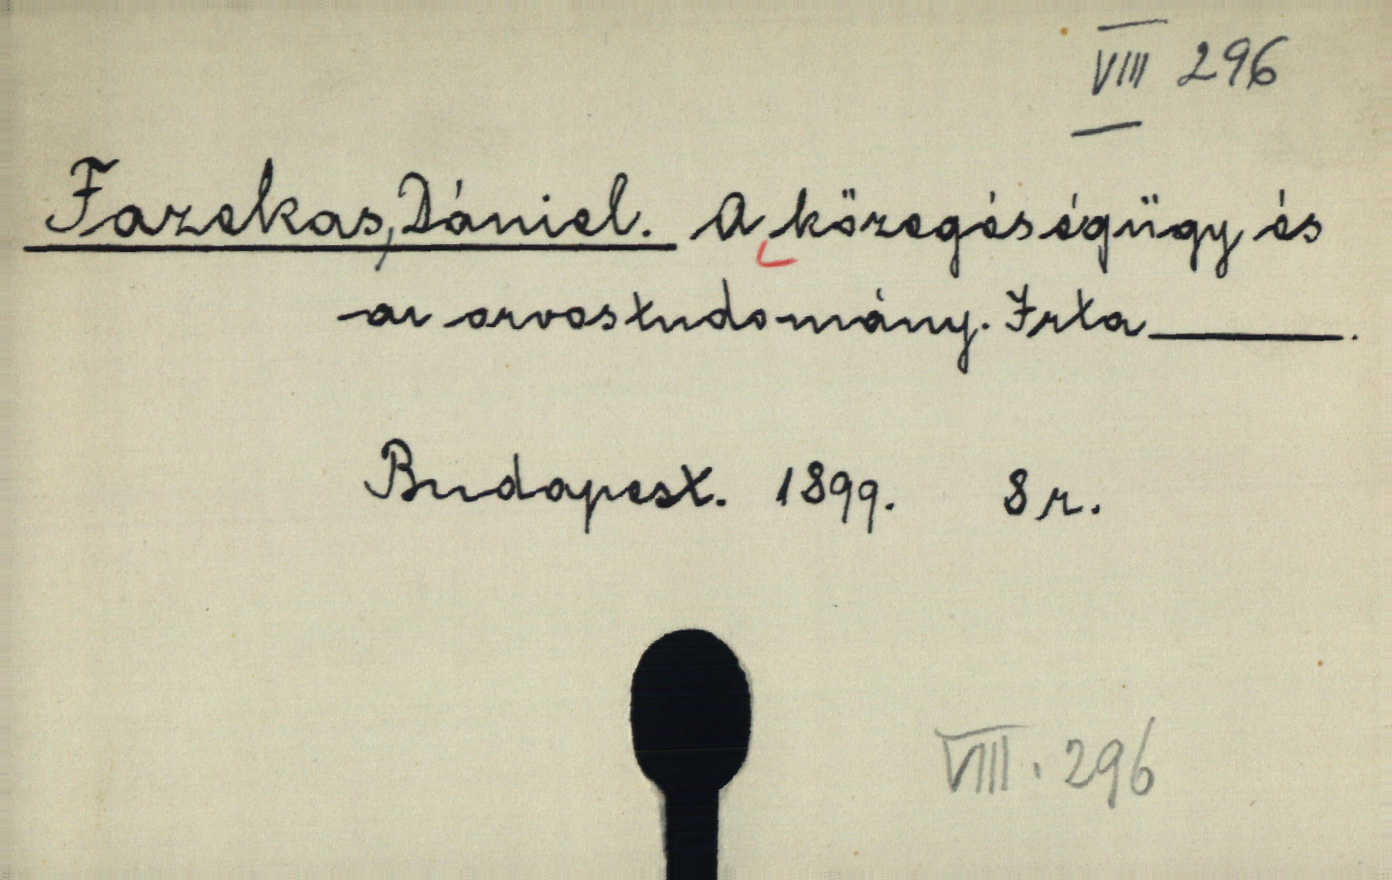 VIII 296
Fazekas, Dániel. A közegéségügy és
az orvostudomány. Irta ______.
Budapest. 1899. 8 r.
VIII. 296